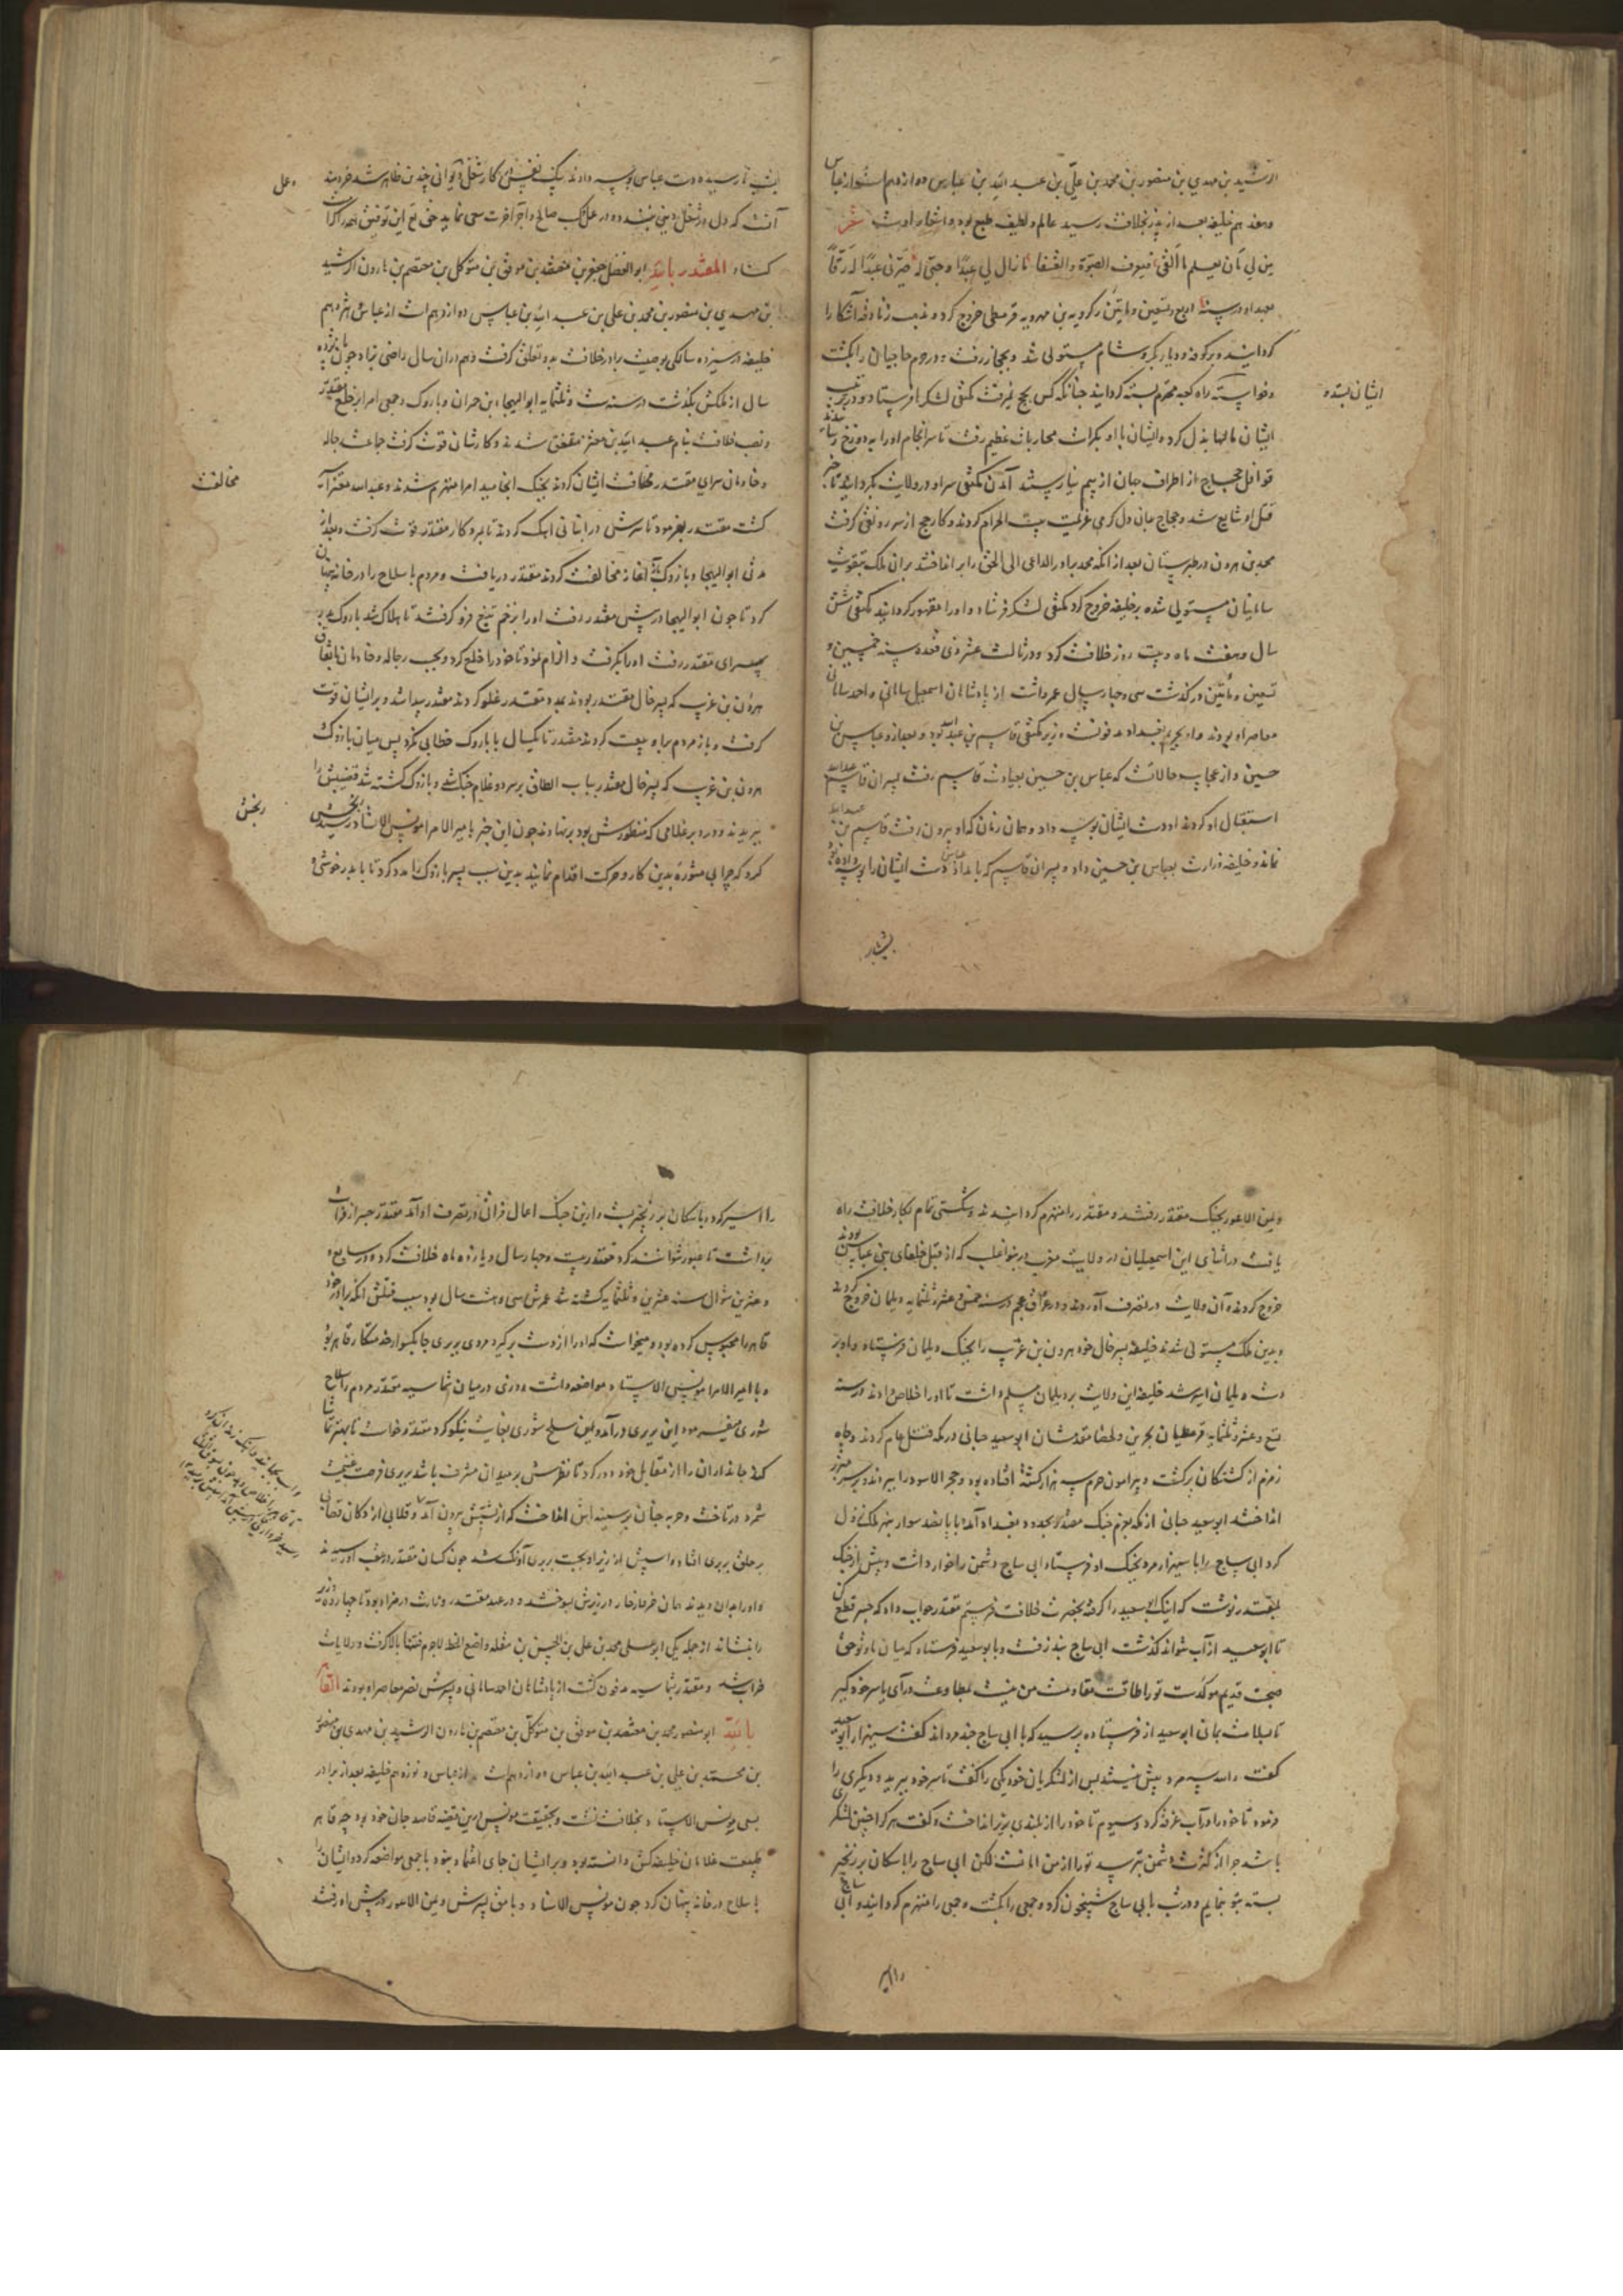 الرشید بن مهدی بن منصور بن محمد بن علی بن عبد الله بن عباس دوازدهم است از عباس
وهفدهم خلیفه بعد از پدر بخلافت رسید عالم و لطیف طبع بود و اشعار اوست شعر
من لی بان یعلم ما القی فیعرف الصبوة والعشقا ما زال لی عبدا وحبی له صیرنی عبدا له رقا
بعد او در سنه اربع و تسعین و مایتین زکرویه بن مهرویه قرمطی خروج کرد و مذهب زنادقه آشکارا
کردانیده بر کوفه و دیار بکر و شام مستولی شد و بحجاز رفت و در حرم حاجیان را بکشت
وخواست که راه کعبه محترم بسته کرداند چنانکه کس بحج نمیرفت مکتفی لشکرها فرستاد و در ترتیب
ایشان بسته و
ایشان مالها بذل کرد و ایشان با او بکرات محاربات عظیم رفت تا سرانجام او را بدوزخ رسانیدند
قوافل حجاج از اطراف جهان از بیم نیارستند آمدن مکتفی سر او در ولایت بکردانید تا خبر
قتل او شایع شد و حجاج بجان و دل کرمی عزیمت بیت الحرام کردند و کار حج از سر رونق کرفت
محمد بن هرون در طبرستان بعد از آنکه محمد برادر الداعی الی الحق را بر انداختند بران ملک بتقویت
سامانیان مستولی شده بر خلیفه خروج کرد مکتفی لشکر فرستاد و او را مقهور کردانید مکتفی شش
سال و هفت ماه و بیست روز خلافت کرد و در ثالث عشر ذی قعده سنه خمس و
تسعین و مأتین در کذشت سی و چهار سال عمر داشت از پادشاهان اسمعیل سامانی و احمد سامانی
معاصر او بودند و او بحریم بغداد مدفونست وزیر مکتفی قاسم بن عبید الله بود و بعد ازو عباس بن
حسین و از عجایب حالات که عباس بن حسین بعیادت قاسم رفت پسران قاسم عبدالله
استقبال او کردند او دست ایشان بوسه داد و همان زمان که او بیرون رفت قاسم بن عبدالله
نماند و خلیفه وزارت بعباس بن حسین داد و پسران قاسم که بامداد عباس دست ایشان را بوسه داده بود
شبانکاه
نارسیده دست عباس بوسه دادند کار شغل دیوانی چندین ظاهر شد خردمند
وعل
آنست که دل در شغل دنیی نبندد و در عمل نیک صالح و اجر آخرت سعی نماید حق تع این توفیق همه را کرامت
کناد المقتدر بالله ابو الفضل جعفر بن معتضد بن موفق بن متوکل بن معتصم بن هارون الرشید
بن مهدی بن منصور بن محمد بن علی بن عبد الله بن عباس دوازدهم است از عباس و هژدهم
خلیفه در سیزده سالکی بوصیت برادر خلافت بدو تعلق کرفت و هم دران سال راضی بزاد چون پانزده
سال از ملکش بکذشت در سنه ست و ثلثمایه ابو الهیجا ابن حمدان و یاروک و جمعی امرا بر خلع مقتدر
و نصب خلافت بنام عبد الله بن معتز متفق شدند و کارشان قوت کرفت جماعت رجاله
و خادمان سرای مقتدر مخالفت ایشان کردند بجنک انجامید امرا منهزم شدند و عبدالله معتز را
مخالفت
کشت مقتدر بفرمود تا سرش در انبانی آهک کردند تا بمرد کار مقتدر قوت کرفت و بعد از
مدتی ابو الهیجا و یازوک باز آغاز مخالفت کردند مقتدر دریافت و مردم با سلاح را در خانه پنهان
کرد تا چون ابو الهیجا در پیش مقتدر رفت او را بزخم تیغ فرو کرفتند تا هلاک شد یاروک
بسرای مقتدر رفت او را بکرفت و الزام نمود تا خود را خلع کرد و بجست رجاله و خادمان باتفاق
هرون بن غریب که پسر خال مقتدر بودند بمدد مقتدر غلو کردند مقتدر پیدا شد و بر ایشان قوت
کرفت و باز مردم براه بیعت کردند مقتدر تا یکسال با یاروک خطابی نکرد پس میان یازوک
هرون بن غریب که پسر خال مقتدر بباب الطاق بر سر دو غلام جنک شد و یازوک کشته شد قضیبش را
ببریدند و در دبر غلامی که منظورش بود بر نهادند چون این خبر بامیر الامرا مونس الاستاد رسید رنجش
رنجش
کرد که چرا بی مشورۀ بدین کار و حرکت اقدام نمایند بدین سبب پسر یازوک را مدد کرد تا با پدر خوشی و
ویمن الاعور بجنک مقتدر رفتند و مقتدر را منهزم کردانیدند و شکستی تمام بکار خلافت راه
یافت در اثنای این اسمعیلیان در ولایت مغرب بر بنو اغلب که از قبل خلفای بنی عباس بودند
خروج کردند و آن ولایت در تصرف آوردند و در عراق عجم در سنه خمس و عشر و ثلثمایه دیلمان خروج کردند
و بدین ملک مستولی شدند خلیفه پسر خال خود هرون بن غریب را بجنک دیلمان فرستاد و او بر
دست دیلمان اسیر شد خلیفه این ولایت بر دیلمان مسلم داشت تا او را خلاص دادند در سنه
تسع و عشر و ثلثمایه قرمطیان بحرین و لحسا مقدمشان ابو سعید جنابی در مکه قتل عام کردند و چاه
زمزم از کشتکان پر کشت و پیرامون حرم سه هزار کشته افتاده بود و حجر الاسود را ببردند و بر سر مبرز
انداختند ابو سعید جنابی از مکه بعزم جنک مقتدر بحدود بغداد آمد با پانصد سوار بنهر ملک نزول
کرد ابی ساج را با سیهزار مرد بجنک او فرستاد ابی ساج دشمن را خوار داشت و پیش از جنک
بمقتدر نوشت که اینک ابو سعید را کرفته بحضرت خلافت فرستم مقتدر جواب داد که جسر قطع کن
تا ابو سعید از آب نتواند کذشت ابی ساج پند نرفت و با بو سعید فرستاد که میان ما و تو حق
صحبت قدیم موکدست تو را طاقت مقاومت من نیست بمطاوعت درآی یا سر خود کیر
تا بسلامت بمانی ابو سعید از فرستاده پرسید که با ابی ساج چند مردند گفت سیهزار ابو سعید
کفت والله سه مرد بیش نیستند پس از لشکریان خود یکی را کفت تا سر خود ببرید و دیکری را
فرمود تا خود را در آب غرقه کرد و سیوم تا خود را از بلندی بزیر انداخت و کفت هر کرا چنین لشکری
باشد چرا از کثرت دشمن بترسد تو را از من امانست لکن ابی ساج را با سکان بر زنجیر
بسته بتو بنمایم و در شب بابی ساج شبیخون کرد و جمعی را بکشت و جمعی را منهزم کردانید و ابی ساج
را اسیر
را اسیر کرد و با سکان بر زنجیر بست و ازین جنک اعمال فراتی در تصرف او آمد مقتدر جسر از فرات
برداشت تا عبور نتوانستند کرد مقتدر بیست و چهار سال و یازده ماه خلافت کرد و در سابع
و عشرین شوال سنه عشرین و ثلثمایه کشته شد عمرش سی و هشت سال بود سبب قتلش آنکه برادر خود
قاهر را محبوس کرده بود و میخواست که او را از دست برگیرد مردی بربری چابکسوار خدمتکار قاهر بود
و با امیر الامرا مونس الاستاد مواضعه داشت و روزی در میان شماسیه مقتدر مردم را سلاح
شوری میفرمود این بربری درآمد و بدین سلح شوری بغایت نیکو کرد مقتدر خواست تا بهتر تماشا
کند جانداران را از مقابل خود دور کرد تا نظرش بر میدان مشرف باشد بربری فرصت غنیمت
شمرد و در تاخت و حربه چنان بر سینه اش انداخت که از پشتش بیرون آمد و قلابی از دکان قصابی
بر حلق بربری افتاد و اسپش از زیر او بجست بربری آونک شد چون کسان مقتدر در عقب او رسیدند
واو را بدان دیدند همان خرمار خار در زیرش بسوختند و در عهد مقتدر وزارت در مزاد بود تا چهارده وزیر
را بنشاند از جمله یکی ابو علی محمد بن علی بن الحسن بن مقله واضع الخط لاجرم فتنها بالا کرفت و ولایات
خراب شد و مقتدر بشماسیه مدفون کشت از پادشاهان احمد سامانی و پسرش نصر معاصر او بودند القاهر
بالله ابو منصور محمد بن معتضد بن موفق بن متوکل بن معتصم بن هارون الرشید بن مهدی بن منصور
بن محمد بن علی بن عبد الله بن عباس دوازدهم است از عباس و نوزدهم خلیفه بعد از برادر
بسعی مونس الاستاد بخلافت نشست و بحقیقت مونس درین قضیه قاصد جان خود بود چه قاهر
طبیعت غلامان خلیفه کش دانسته بود و بر ایشان جای اعتماد نبود با جمعی مواضعه کرد و ایشان را
با سلاح در خانه پنهان کرد چون مونس الاستاد و با میق پسرش ویمن الاعور در پیش او رفت